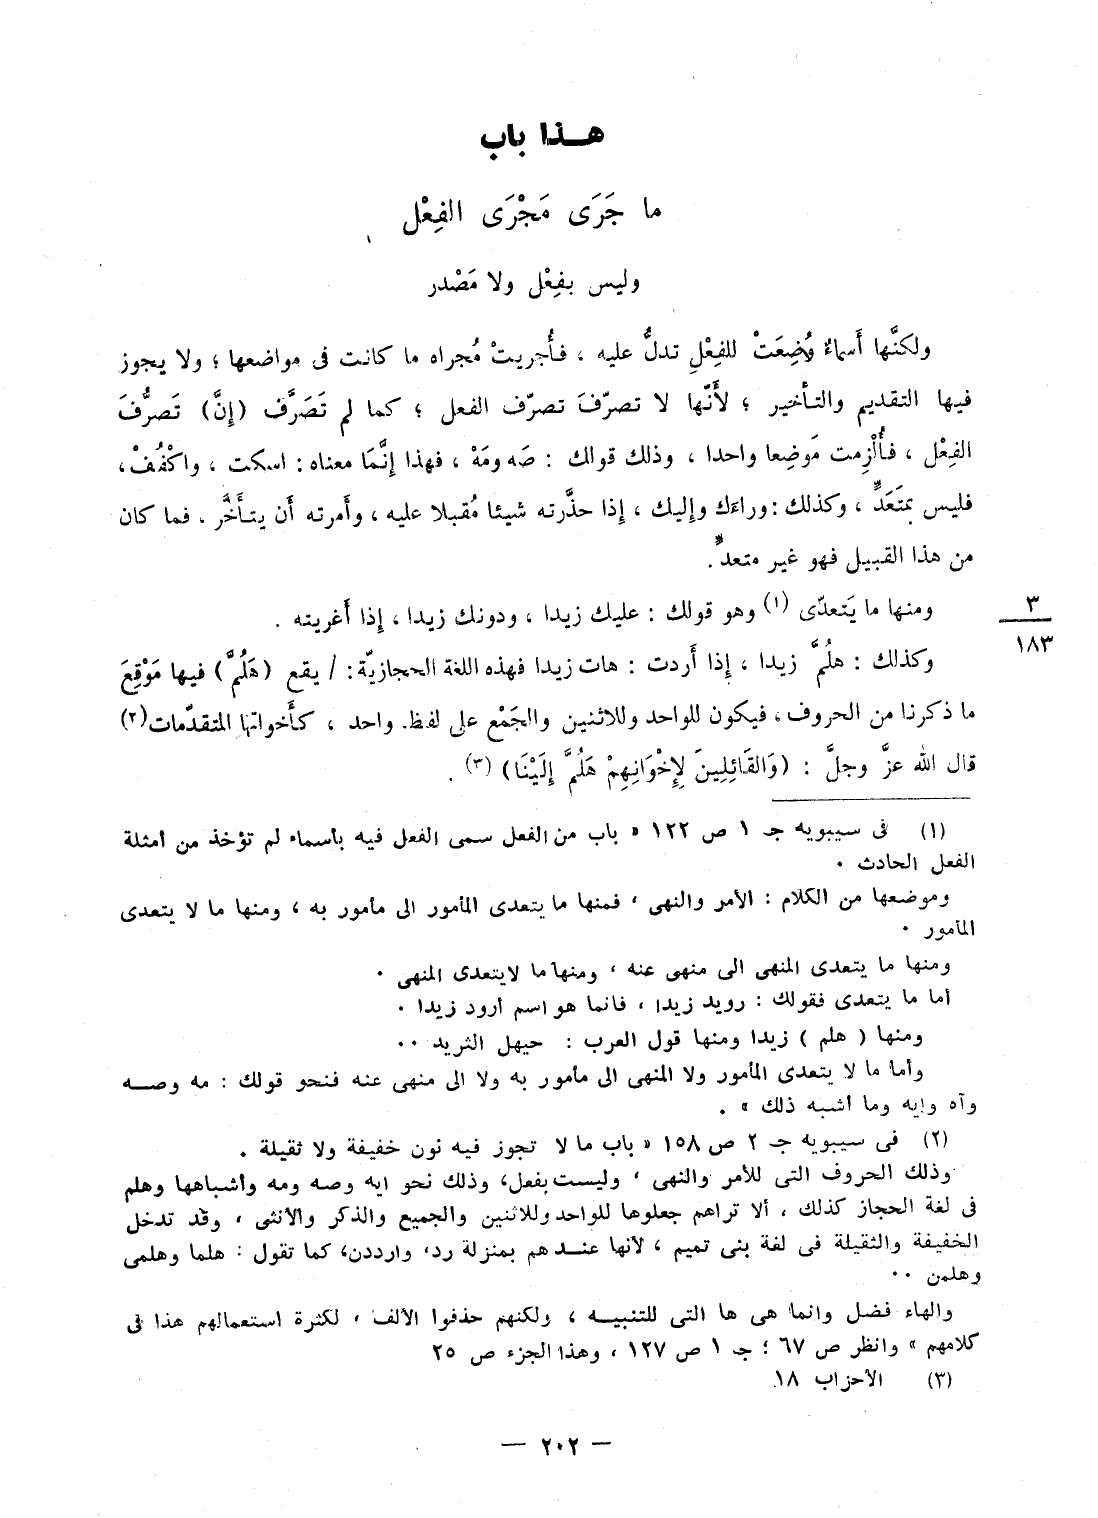 هـــذا باب
ما جَرَى مَجْرَى الفِعْل
وليس بفِعْل ولا مَصْدر
ولكنَّها أَسماءٌ وُضِعَتْ للفِعْلِ تدلُّ عليه ، فأُجريتْ مُجراه ما كانت فى مواضعها ؛ ولا يجوز
فيها التقديم والتأخير ؛ لأَنّها لا تصرّفَ تصرّف الفعل ؛ كما لم تَصَرَّف (إِنَّ) تَصرُّفَ
الفِعْل ، فأُلْزِمت مَوضِعا واحدا ، وذلك قولك : صَه ومَهْ ، فهذا إِنَّمَا معناه : اسكت ، واكْفُفْ ،
فليس بمتَعَدٍّ ، وكذلك : وراءَك وإِليك ، إِذا حذَّرته شيئا مُقبلا عليه ، وأَمرته أَن يتأَخَّر . فما كان
من هذا القبيل فهو غير متعدٍّ .
ومنها ما يَتعدّى (١) وهو قولك : عليك زيدا ، ودونك زيدا ، إِذا أَغريته .
٣
١٨٣
وكذلك : هلُمَّ زيدا ، إِذا أَردت : هات زيدا فهذه اللغة الحجازيّة : / يقع (هَلُمَّ) فيها مَوْقِعَ
ما ذكرنا من الحروف ، فيكون للواحد وللاثنين والجَمْع على لفظ. واحد ، كأَخواتها المتقدّمات (٢)
قال الله عزَّ وجلَّ : (وَالقَائِلِينَ لِإِخْوَانِهِمْ هَلُمَّ إِلَيْنَا) (٣) .
(١) فى سيبويه جـ ١ ص ١٢٢ « باب من الفعل سمى الفعل فيه بأسماء لم تؤخذ من أمثلة
الفعل الحادث .
وموضعها من الكلام : الأمر والنهى ، فمنها ما يتعدى المأمور الى مأمور به ، ومنها ما لا يتعدى
المأمور .
ومنها ما يتعدى المنهى الى منهى عنه ، ومنها ما لايتعدى المنهى .
أما ما يتعدى فقولك : رويد زيدا ، فانما هو اسم أرود زيدا .
ومنها ( هلم ) زيدا ومنها قول العرب : حيهل الثريد ..
وأما ما لا يتعدى المأمور ولا المنهى الى مأمور به ولا الى منهى عنه فنحو قولك : مه وصـــه
وآه وايه وما أشبه ذلك » .
(٢) فى سيبويه جـ ٢ ص ١٥٨ « باب ما لا تجوز فيه نون خفيفة ولا ثقيلة .
وذلك الحروف التى للأمر والنهى ، وليست بفعل، وذلك نحو ايه وصه ومه وأشباهها وهلم
فى لغة الحجاز كذلك ، ألا تراهم جعلوها للواحد وللاثنين والجميع والذكر والأنثى ، وقد تدخل
الخفيفة والثقيلة فى لغة بنى تميم ، لأنها عنــدهم بمنزلة رد، وارددن، كما تقول : هلما وهلمى
وهلمن ..
والهاء فضل وانما هى ها التى للتنبيـــه ، ولكنهم حذفوا الألف ، لكثرة استعمالهم هذا فى
كلامهم » وانظر ص ٦٧ ؛ جـ ١ ص ١٢٧ ، وهذا الجزء ص ٢٥
(٣) الأحزاب ١٨
— ٢٠٢ —